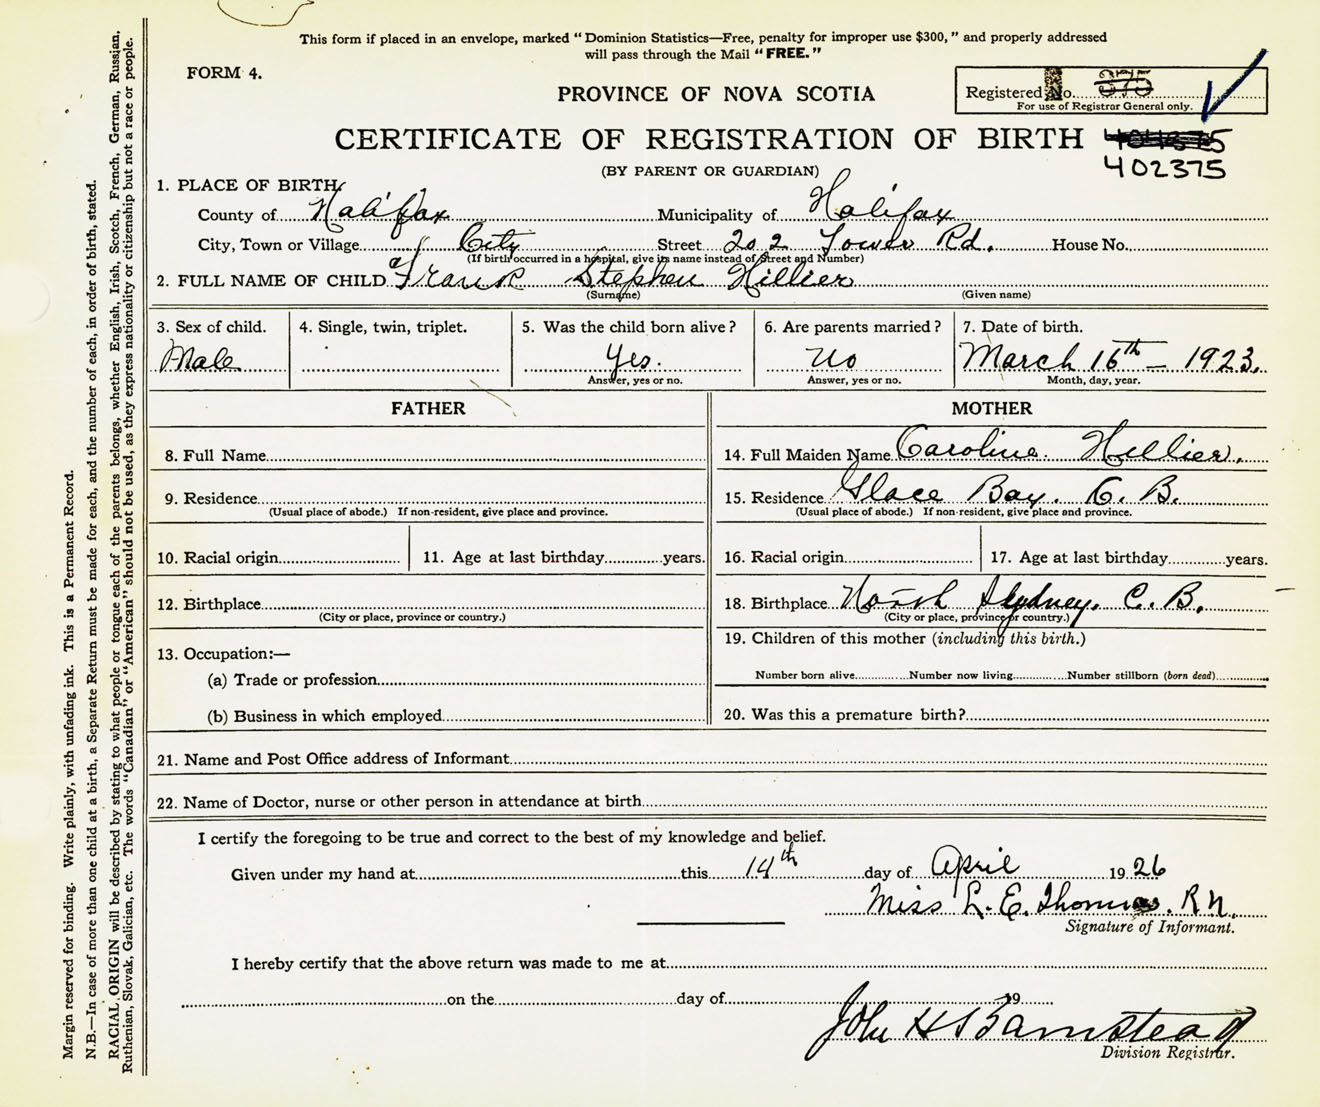 This form if placed in an envelope, marked "Dominion Statistics—Free, penalty for improper use $300," and properly addressed
will pass through the Mail "FREE."
FORM 4.
Registered No. 375
For use of Registrar General only.
PROVINCE OF NOVA SCOTIA
CERTIFICATE OF REGISTRATION OF BIRTH
402375
(BY PARENT OR GUARDIAN)
1. PLACE OF BIRTH
County of Halifax Municipality of Halifax
City, Town or Village City Street 202 Tower Rd. House No.
(If birth occurred in a hospital, give its name instead of Street and Number)
2. FULL NAME OF CHILD Frank Stephen Hillier
(Surname) (Given name)
3. Sex of child. 4. Single, twin, triplet. 5. Was the child born alive? 6. Are parents married? 7. Date of birth.
Male Yes. No March 16th — 1923.
Answer, yes or no. Answer, yes or no. Month, day, year.
FATHER MOTHER
8. Full Name 14. Full Maiden Name Caroline Hillier.
9. Residence 15. Residence Glace Bay. C. B.
(Usual place of abode.) If non-resident, give place and province. (Usual place of abode.) If non-resident, give place and province.
10. Racial origin 11. Age at last birthday years. 16. Racial origin 17. Age at last birthday years.
12. Birthplace 18. Birthplace North Sydney. C. B.
(City or place, province or country.) (City or place, province or country.)
13. Occupation:— 19. Children of this mother (including this birth.)
(a) Trade or profession Number born alive Number now living Number stillborn (born dead)
(b) Business in which employed 20. Was this a premature birth?
21. Name and Post Office address of Informant
22. Name of Doctor, nurse or other person in attendance at birth
I certify the foregoing to be true and correct to the best of my knowledge and belief.
Given under my hand at this 14th day of April 1926
Miss L. E. Thomas. R N.
Signature of Informant.
I hereby certify that the above return was made to me at
on the day of 19
John H Barnstead
Division Registrar.
Margin reserved for binding. Write plainly, with unfading ink. This is a Permanent Record.
N.B.—In case of more than one child at a birth, a Separate Return must be made for each, and the number of each, in order of birth, stated.
RACIAL ORIGIN will be described by stating to what people or tongue each of the parents belongs, whether English, Irish, Scotch, French, German, Russian,
Ruthenian, Slovak, Galician, etc. The words "Canadian" or "American" should not be used, as they express nationality or citizenship but not a race or people.